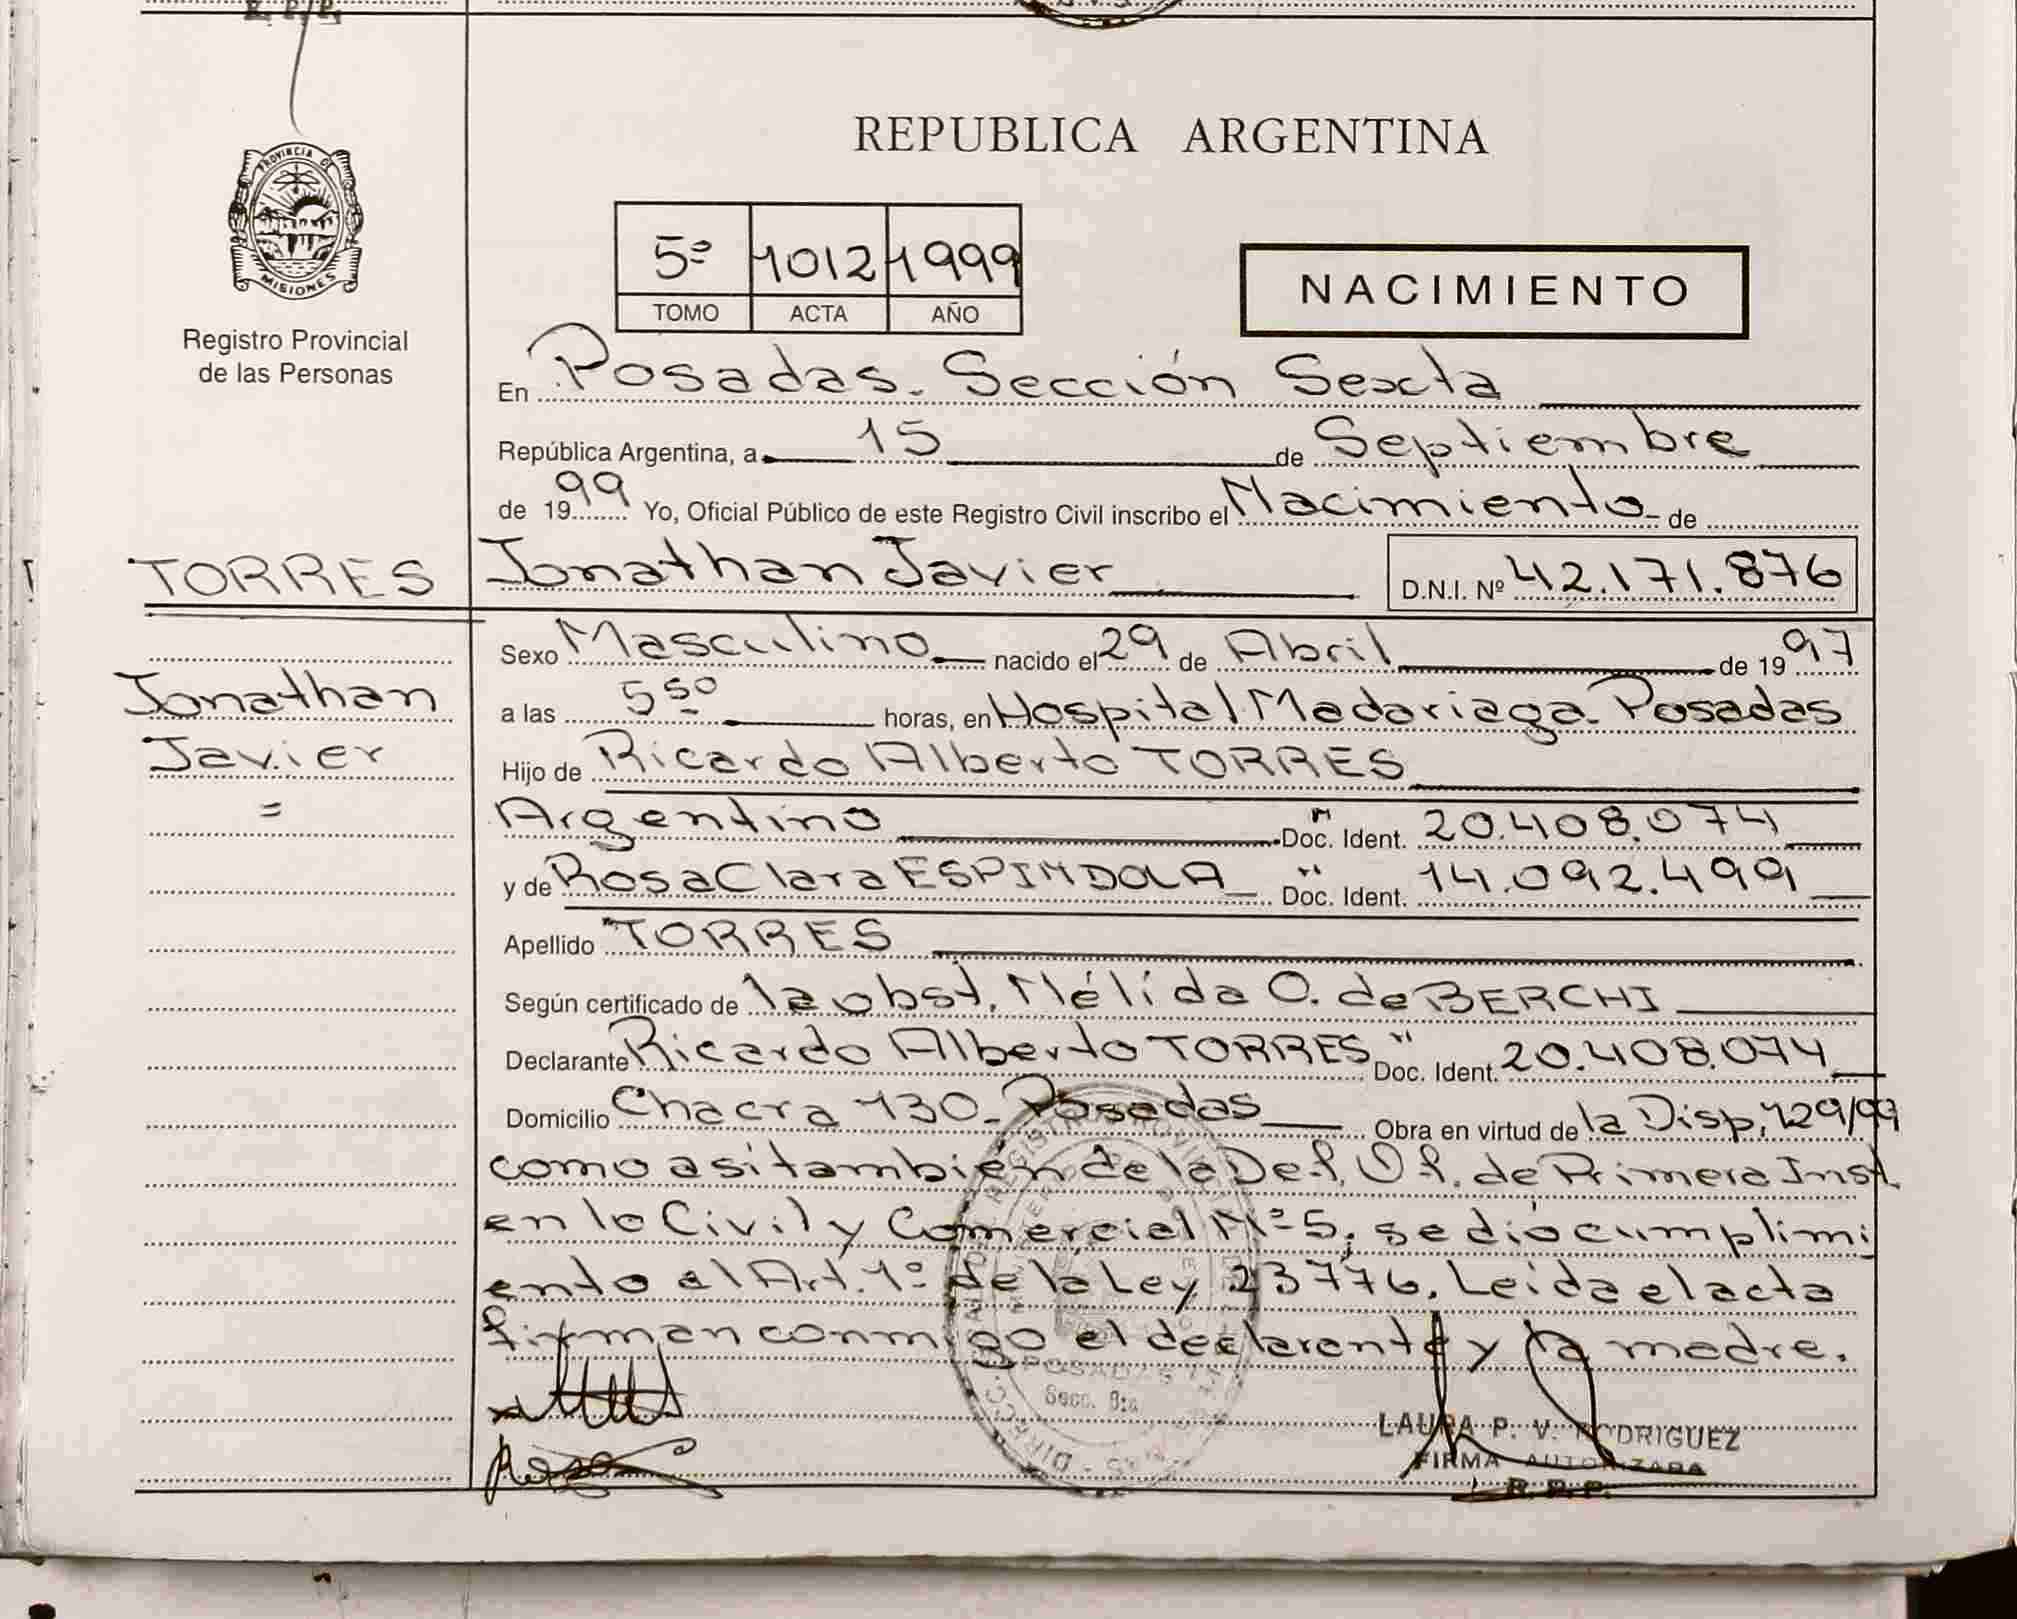 R. P. P.
PROVINCIA DE
MISIONES
Registro Provincial
de las Personas
REPUBLICA ARGENTINA
5º 1012 1999
TOMO ACTA AÑO
NACIMIENTO
En Posadas. Sección Sexta
República Argentina, a 15 de Septiembre
de 1999 Yo, Oficial Público de este Registro Civil inscribo el Nacimiento de
TORRES Jonathan Javier D.N.I. Nº 42.171.876
Sexo Masculino nacido el 29 de Abril de 1997
Jonathan
Javier
=
a las 5 50 horas, en Hospital Madariaga. Posadas
Hijo de Ricardo Alberto TORRES
Argentino Doc. Ident. 20.408.074
y de Rosa Clara ESPINDOLA Doc. Ident. 14.092.499
Apellido TORRES
Según certificado de la obst. Nélida O. de BERCHI
Declarante Ricardo Alberto TORRES Doc. Ident. 20.408.074
Domicilio Chacra 130. Posadas Obra en virtud de la Disp. 129/99
como asi también de la Def. Of. de Primera Inst
en lo Civil y Comercial Nº 5, se dió cumplimi
ento al Art. 1º de la Ley 23776. Leida el acta
firman conmigo el declarante y la madre.
POSADAS
Secc. 6ta
LAURA P. V. RODRIGUEZ
FIRMA AUTORIZADA
R.P.P.